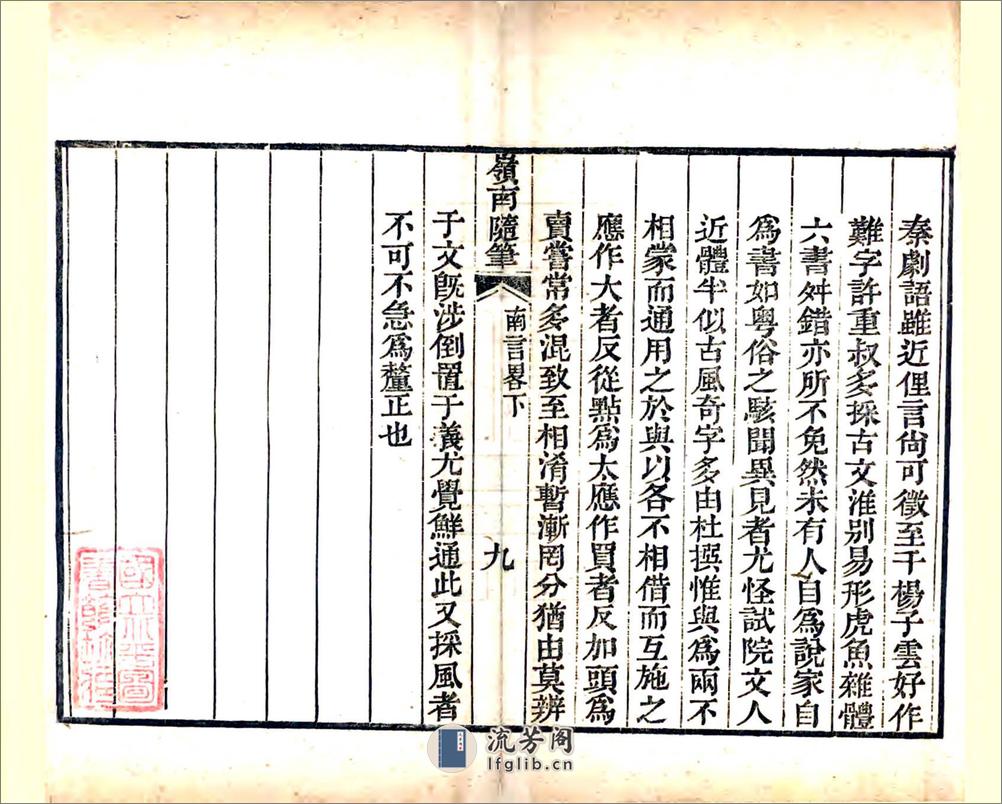 秦劇語雖近俚言尙可徵至于楊子雲好作
難字許重叔多採古文淮别易形虎魚雜體
六書舛錯亦所不免然未有人自爲說家自
爲書如粤俗之駭聞異見者尤怪試院文人
近體半似古風奇字多由杜撰惟與爲兩不
相蒙而通用之於與以各不相借而互施之
應作大者反從點爲太應作買者反加頭爲
賣嘗常多混致至相淆暫漸罔分猶由莫辨
嶺南隨筆
南言畧下
九
于文旣涉倒置于義尤覺鮮通此又採風者
不可不急爲釐正也
流芳阁
lfglib.cn